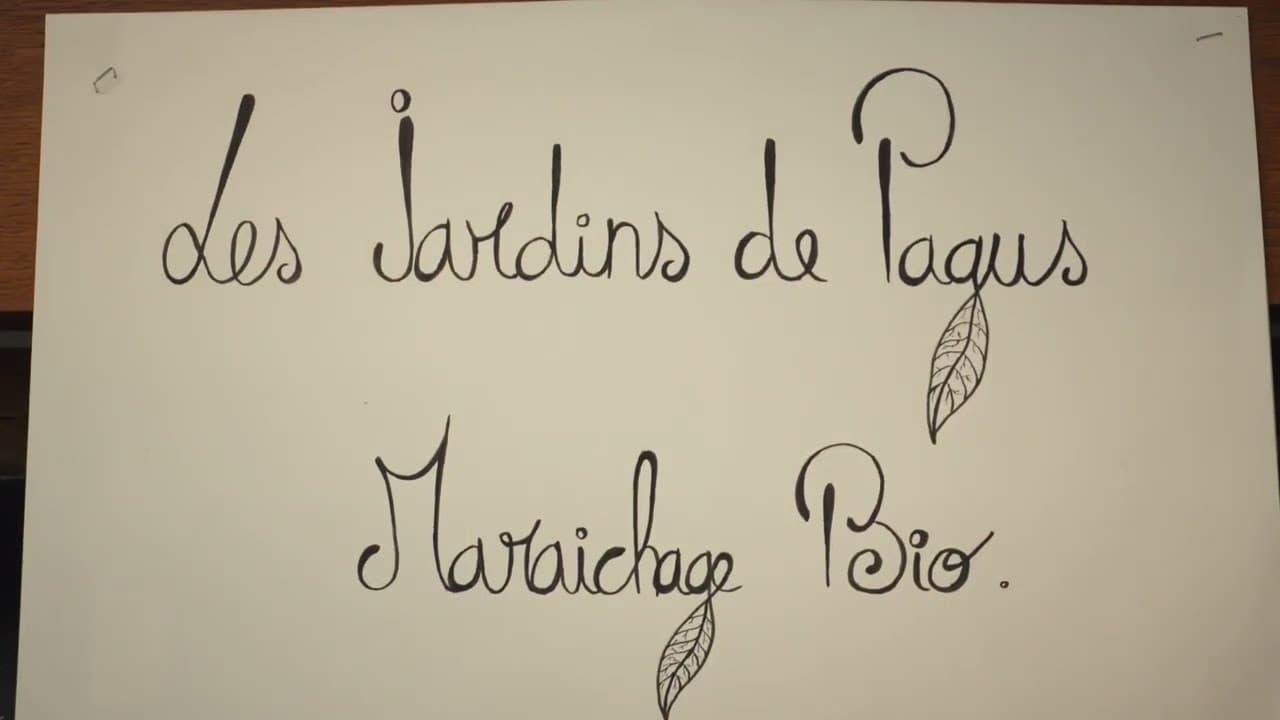 Les Jardins de Pagus
Maraichage Bio.